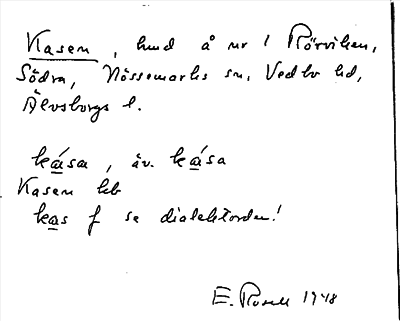 Kasen, hmd å nr 1 Rörviken,
Södra, Nössemarks sn, Vedbo hd,
Älvsborgs l.
kása, äv. kása
Kasen bb
kas f se dialektorden!
E. Rosell 1948